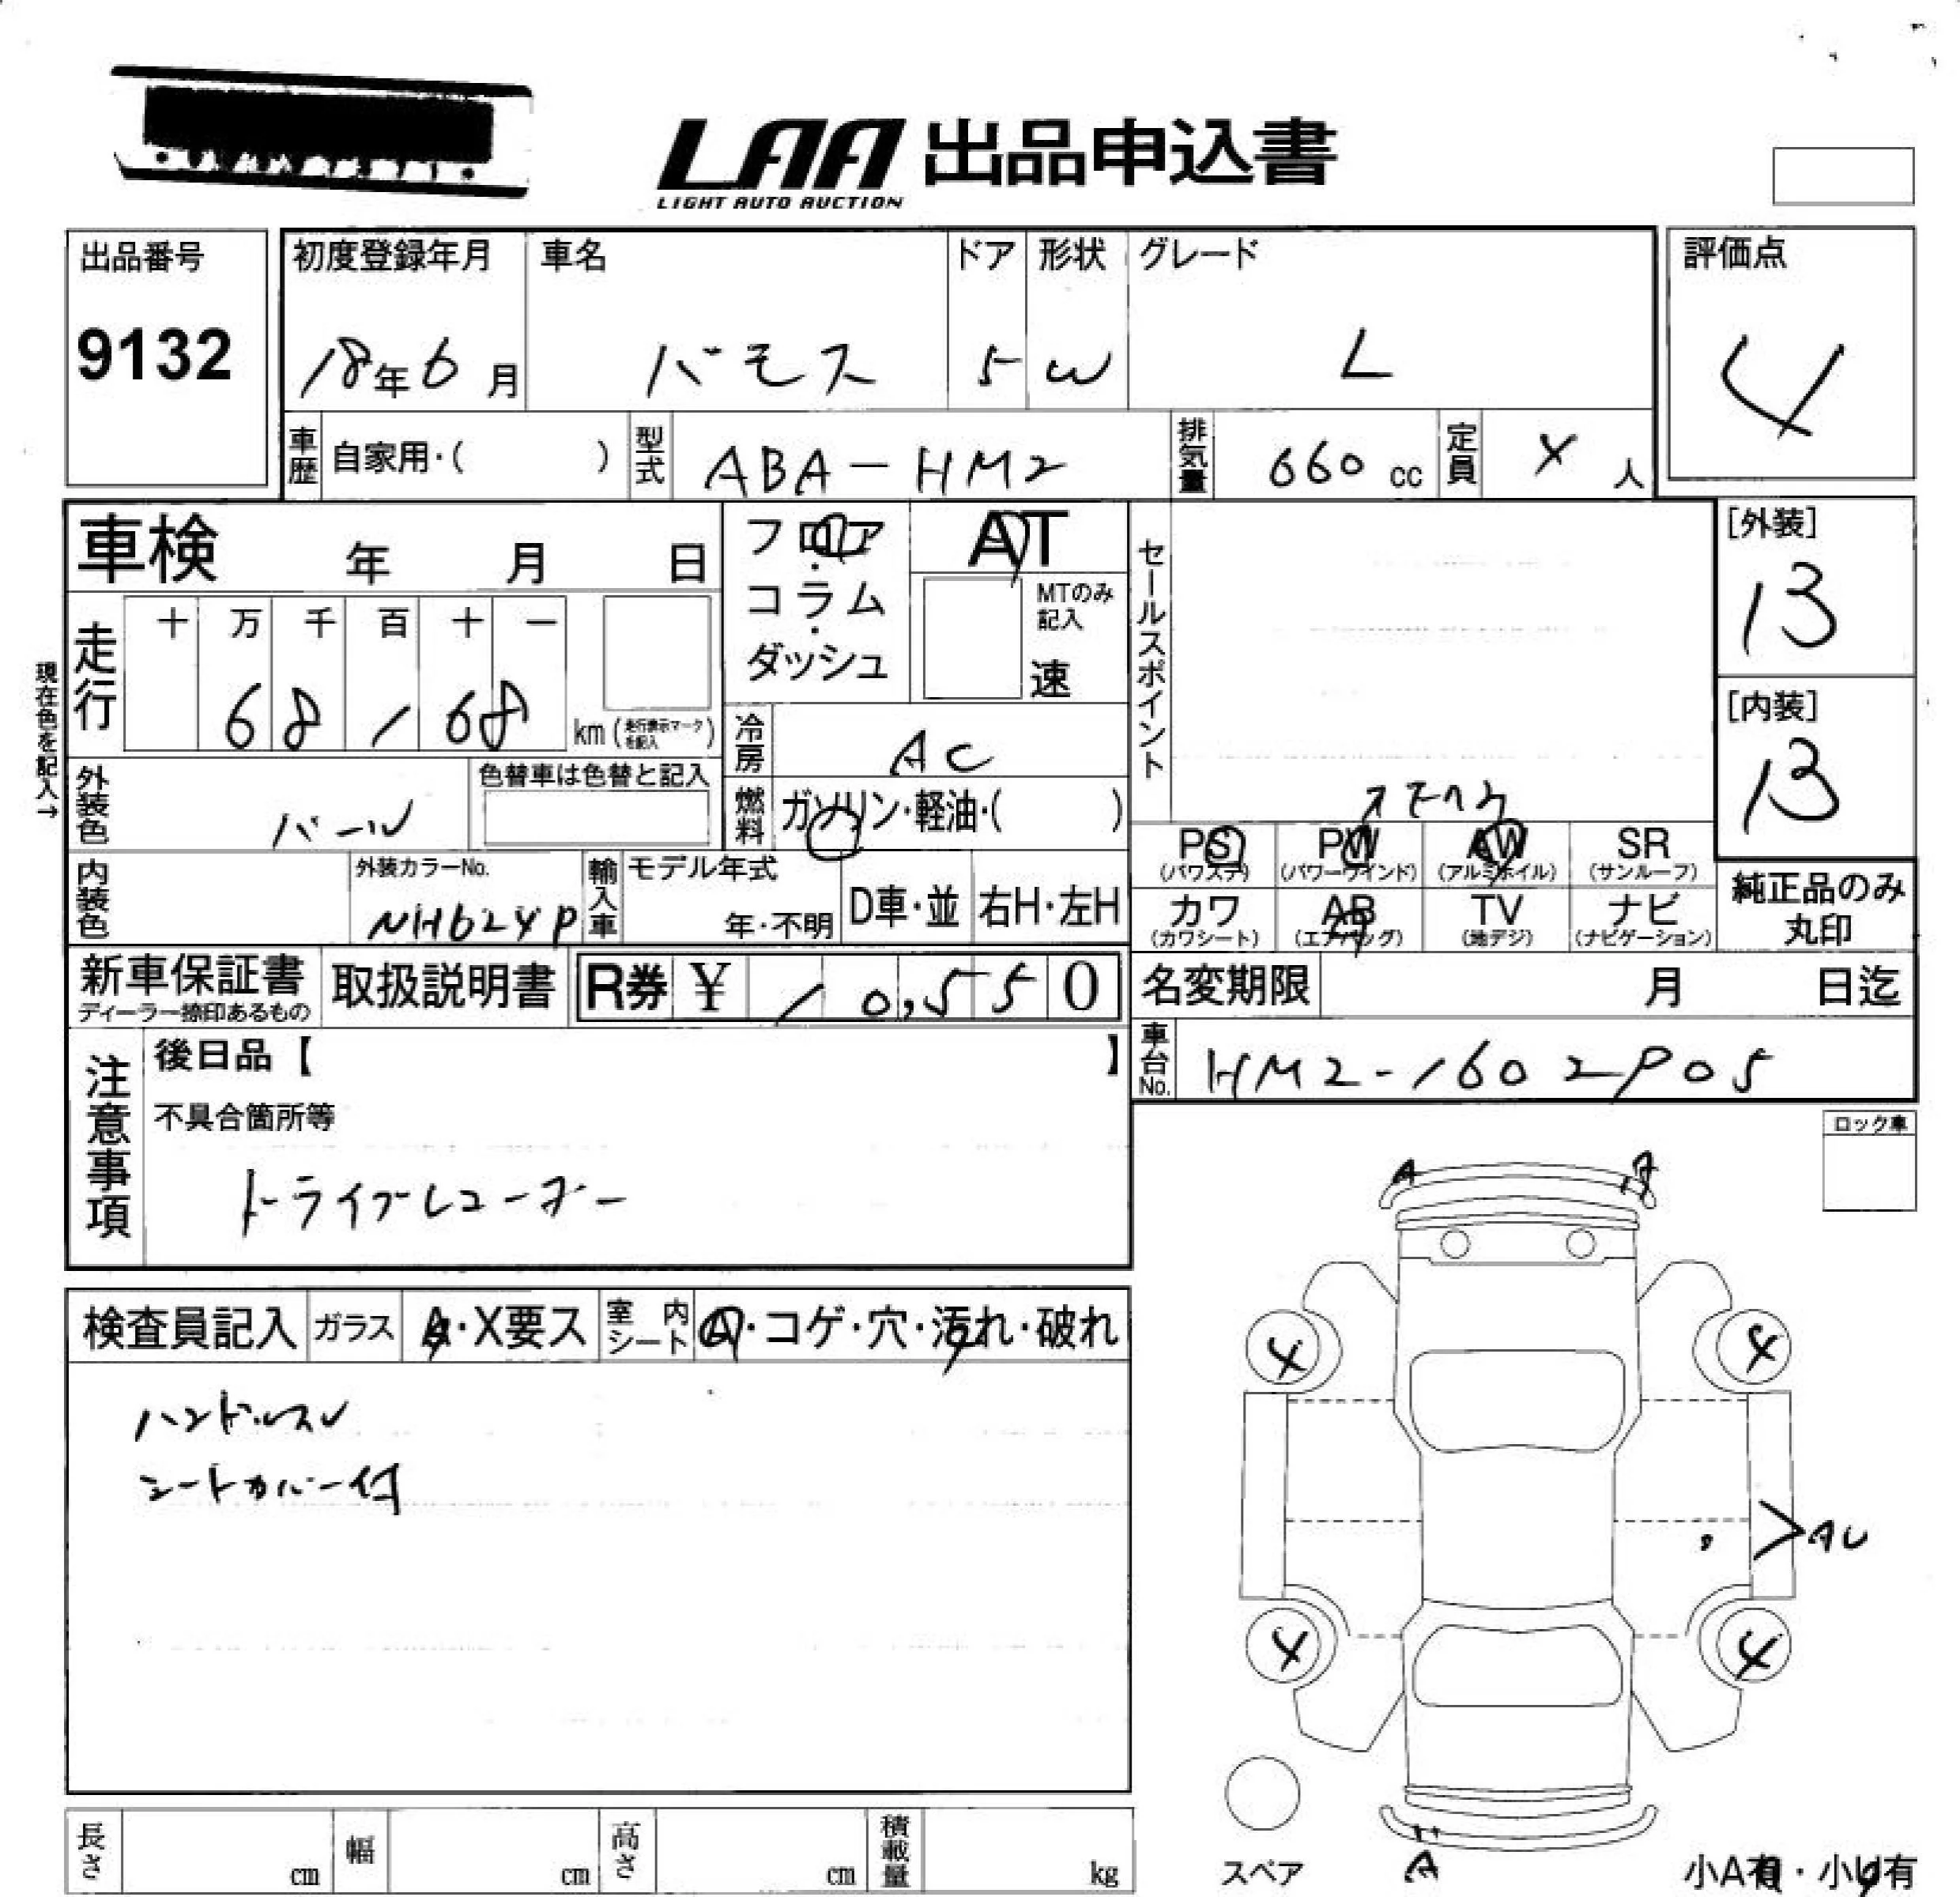 LAA 出品申込書
LIGHT AUTO AUCTION
出品番号
9132
初度登録年月
18年6月
車名
バモス
ドア
5
形状
W
グレード
L
評価点
4
車歴
自家用・( )
型式
ABA-HM2
排気量
660 cc
定員
4 人
車検 年 月 日
フロア・コラム・ダッシュ
AT
MTのみ記入
速
セールスポイント
[外装]
B
[内装]
B
現在色を記入→
走行
十 万 千 百 十 一
6 8 1 6 8
km (走行表示マークを記入)
冷房
AC
外装色
パール
色替車は色替と記入
燃料
ガソリン・軽油・( )
PS
(パワステ)
PW
(パワーウインド)
AW
(アルミホイル)
SR
(サンルーフ)
カワ
(カワシート)
AB
(エアバッグ)
TV
(地デジ)
ナビ
(ナビゲーション)
純正品のみ
丸印
内装色
外装カラーNo.
NH624P
輸入車
モデル年式
年・不明
D車・並
右H・左H
新車保証書
ディーラー捺印あるもの
取扱説明書
R券 ¥ 10,550
名変期限 月 日迄
車台No.
HM2-1602905
注意事項
後日品【 】
不具合箇所等
ドライブレコーダー
ロック車
A
A
検査員記入
ガラス
A・X要ス
室内シート
・コゲ・穴・汚れ・破れ
ハンドルスレ
シートカバー付
4
4
AU
4
4
A
スペア
小A有・小U有
長さ cm
幅 cm
高さ cm
積載量 kg